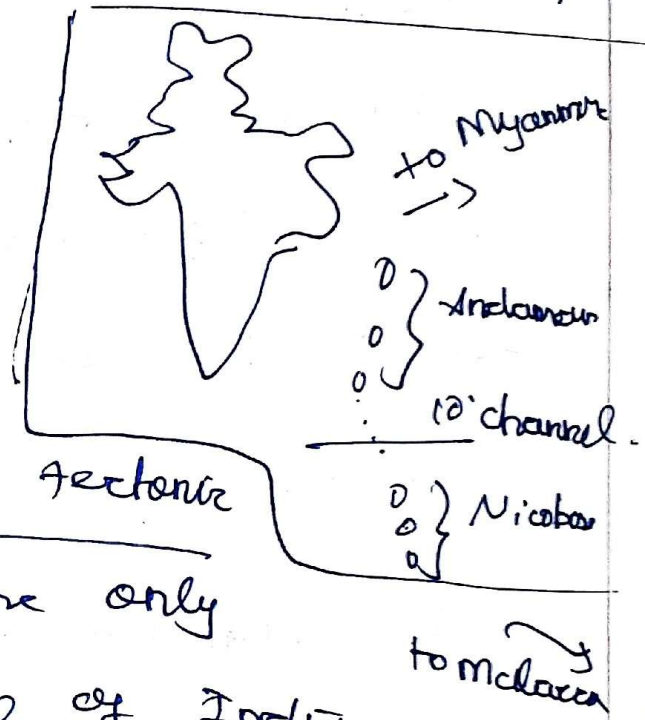 to Myanmar
Andaman
10° channel.
Tectonic
Nicobar
only
to Malacca
of